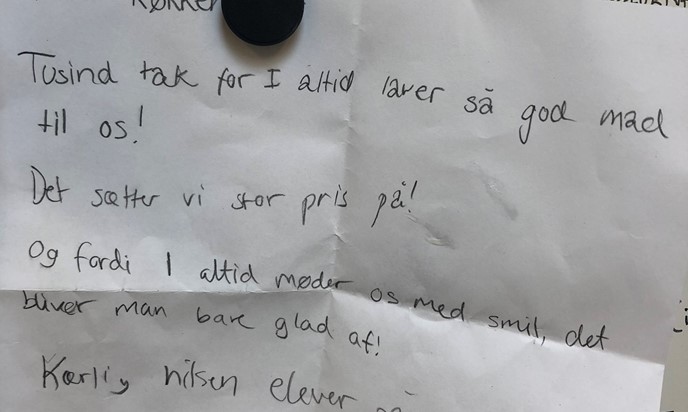 Køkken
Tusind tak for I altid laver så god mad
til os!
Det sætter vi stor pris på!
Og fordi I altid møder os med smil, det
bliver man bare glad af!
Kærlig hilsen elever på